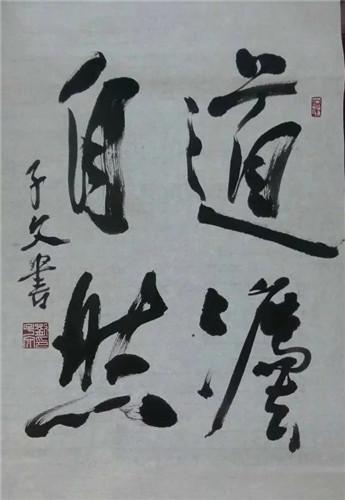 道灋
自然
子文書